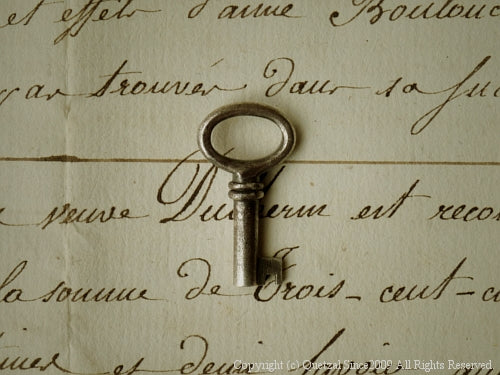 et effets d'anne Boulouc
par trouvés dans sa suc
veuve est recon
la somme de Trois-cent-c
et demi
Copyright (c) Quetzal Since2009 All Rights Reserved.